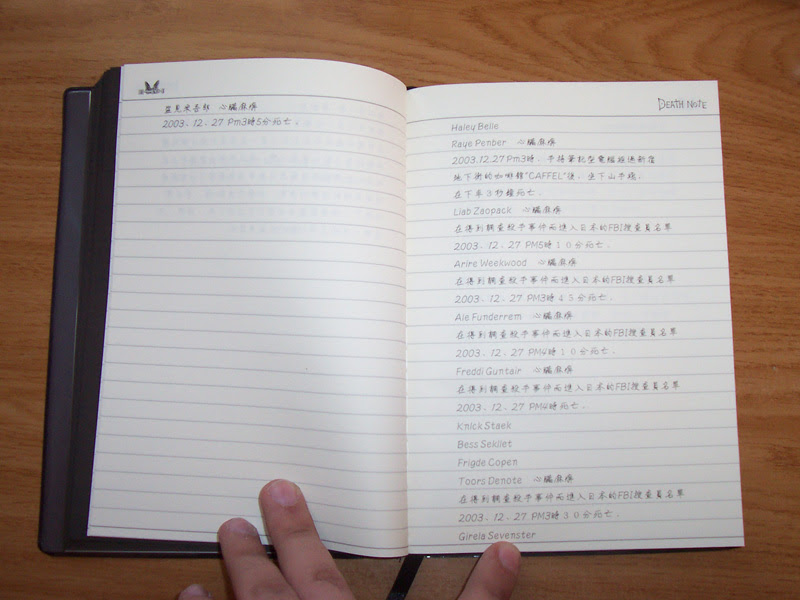 心臟麻痺
2003. 12. 27 Pm3時5分死亡.
DEATH NOTE
Haley Belle
Raye Penber 心臟麻痺
2003.12.27 Pm3時. 手持筆記型電腦經過新宿
地下街的咖啡館"CAFFEL"後. 坐下山手線.
在下車3秒鐘死亡.
Liab Zaopack 心臟麻痺
在得到調查殺手事件而進入日本的FBI搜查員名單
2003. 12. 27 PM5時10分死亡.
Arire Weekwood 心臟麻痺
在得到調查殺手事件而進入日本的FBI搜查員名單
2003. 12. 27 PM3時45分死亡.
Ale Funderrem 心臟麻痺
在得到調查殺手事件而進入日本的FBI搜查員名單
2003. 12. 27 PM4時10分死亡.
Freddi Guntair 心臟麻痺
在得到調查殺手事件而進入日本的FBI搜查員名單
2003. 12. 27 PM4時死亡.
Knick Staek
Bess Sekllet
Frigde Copen
Toors Denote 心臟麻痺
在得到調查殺手事件而進入日本的FBI搜查員名單
2003. 12. 27 PM3時30分死亡.
Girela Sevenster